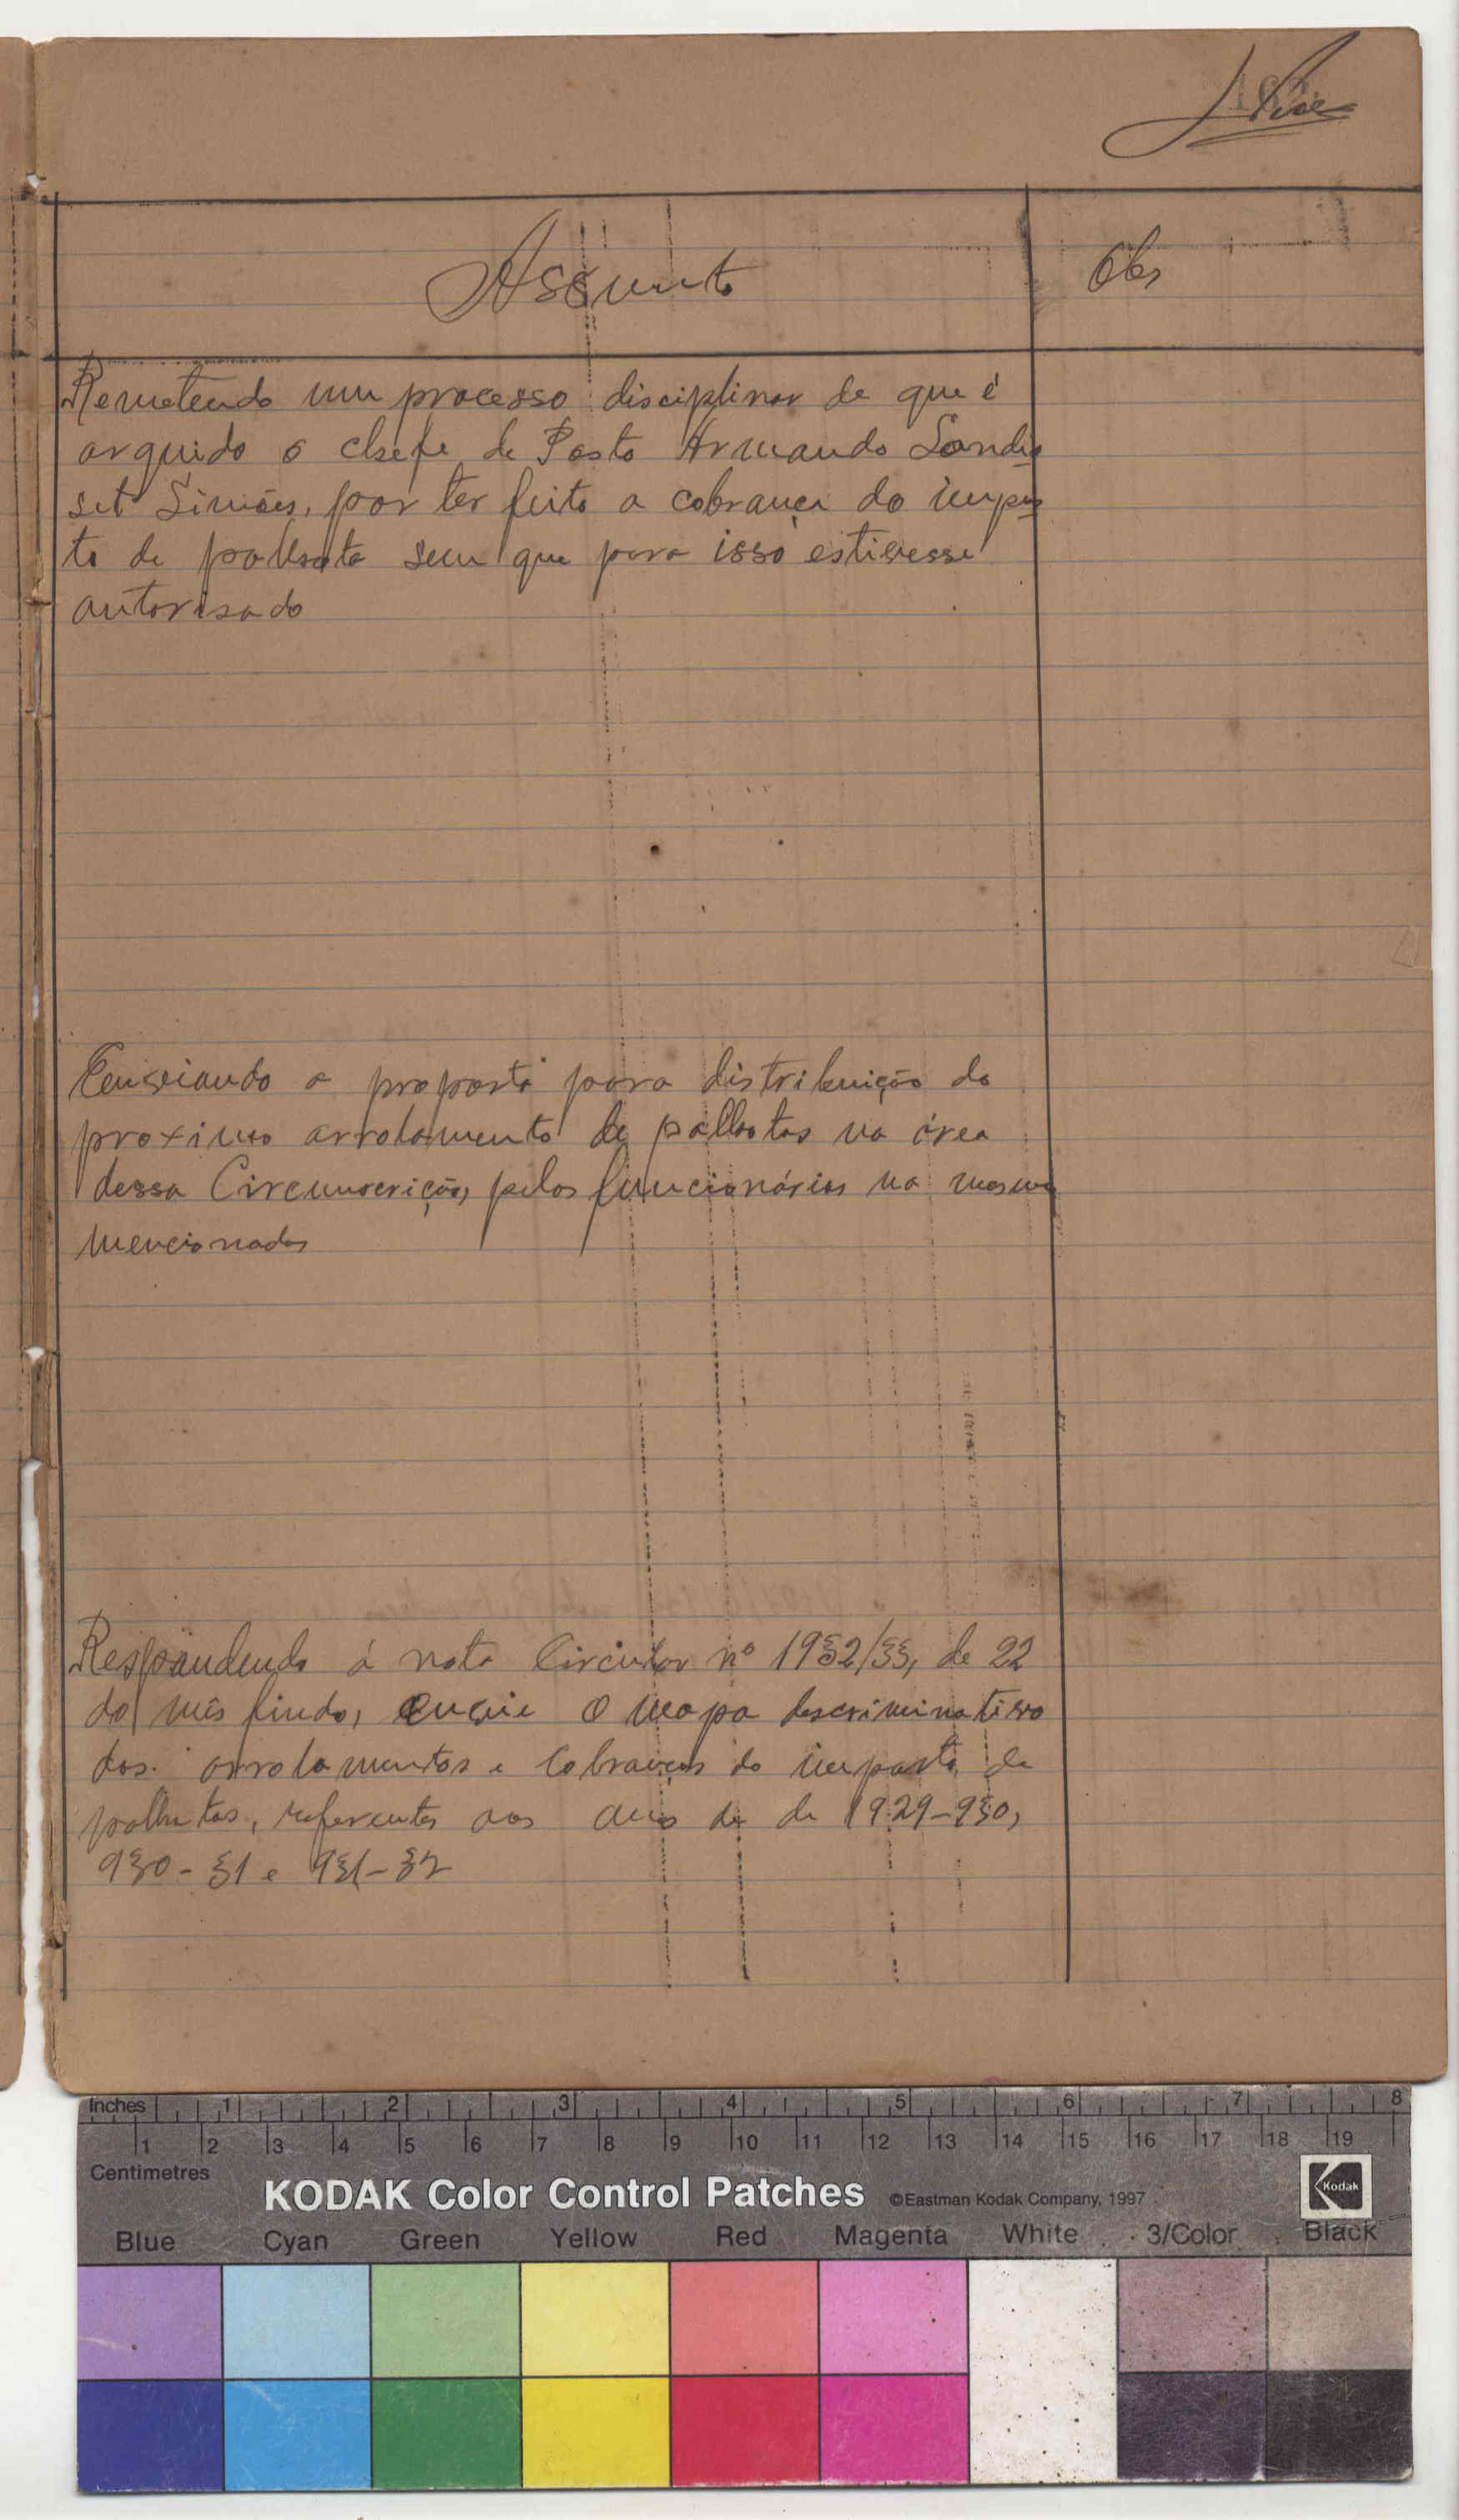 Assunto
Obs
Remetendo um processo disciplinar de que é
arguido o chefe de Posto Armando
set Simões, por ter feito a cobrança do impos
to de palhota sem que para isso estivesse
autorisado
Enviando a proposta para distribuição do
proximo arrolamento de palhotas na área
dessa Circunscrição, pelos funcionários na mesma
mencionados
Respondendo á nota Circular nº 1932/33, de 22
do mês findo, envie o mapa descriminativo
dos arrolamentos e cobranças do imposto de
palhotas, referentes aos anos de de 1929-930,
930-31 e 931-32
Inches 1 2 3 4 5 6 7 8
1 2 3 4 5 6 7 8 9 10 11 12 13 14 15 16 17 18 19
Centimetres
KODAK Color Control Patches ©Eastman Kodak Company, 1997 Kodak
Blue Cyan Green Yellow Red Magenta White 3/Color Black